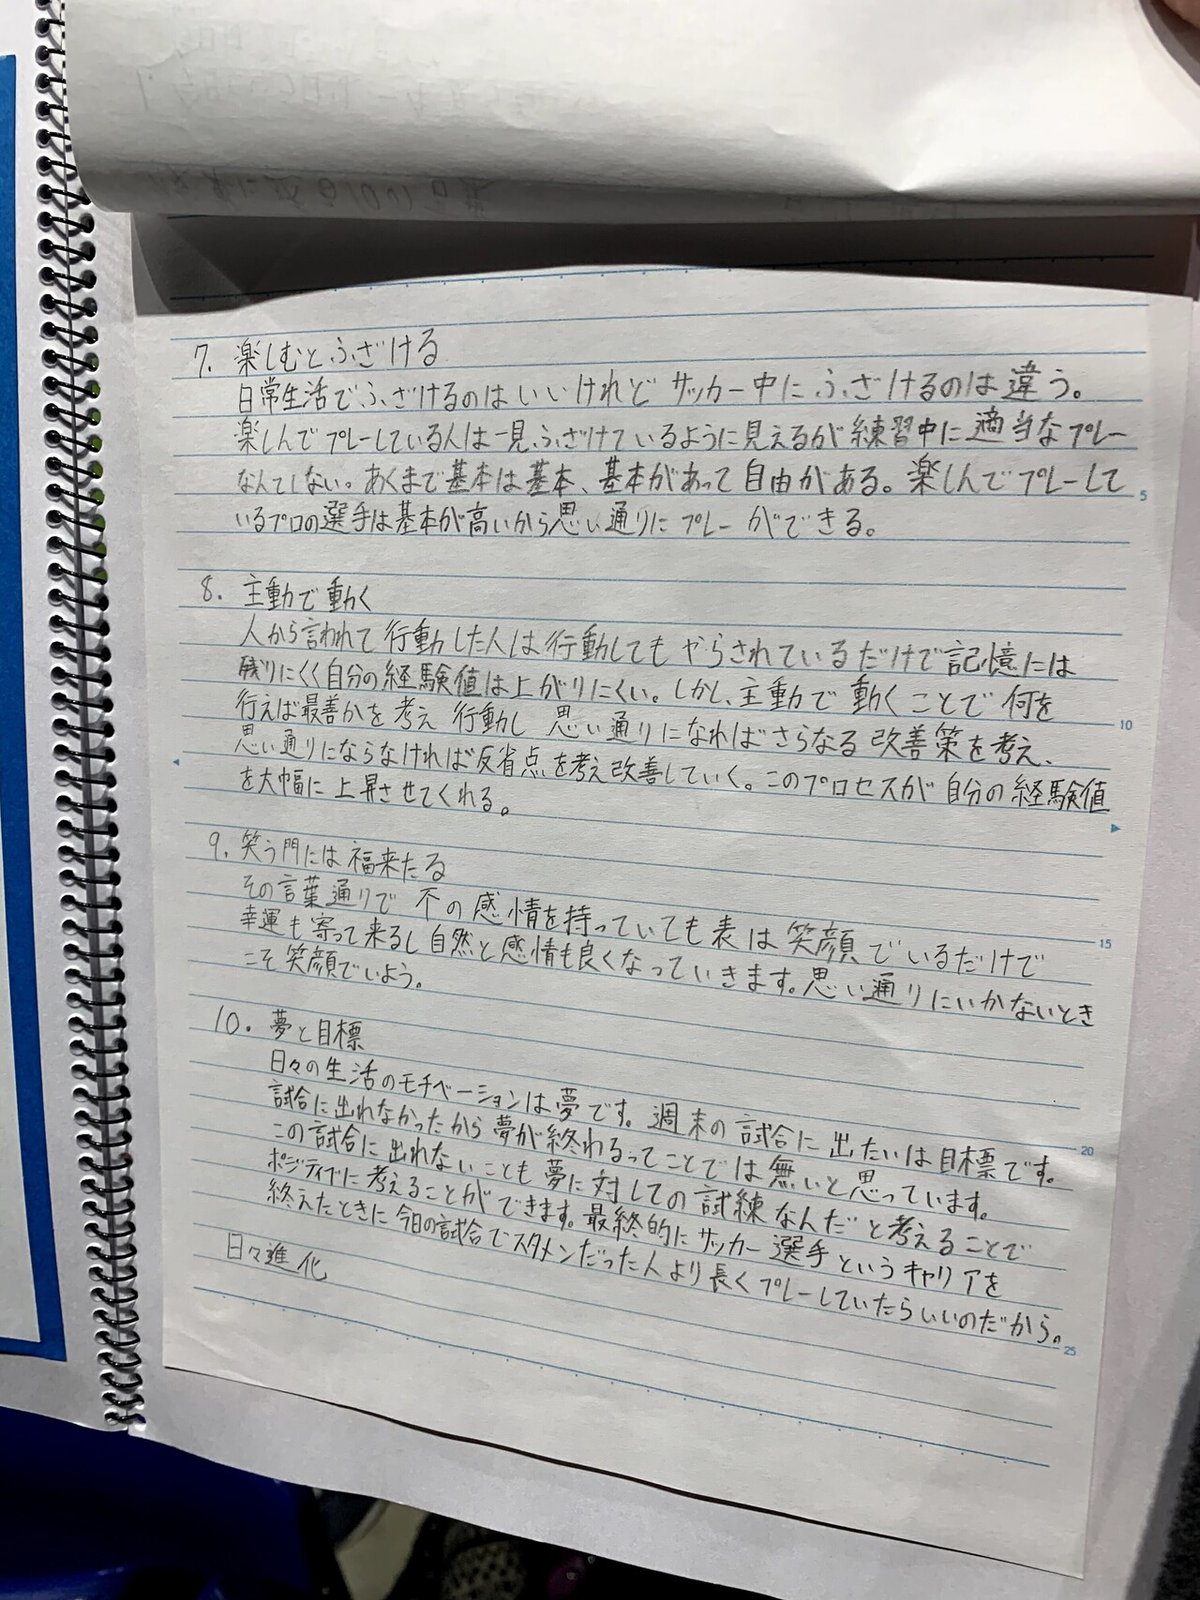 7. 楽しむとふざける
日常生活でふざけるのはいいけれどサッカー中にふざけるのは違う。
楽しんでプレーしている人は一見、ふざけているように見えるが練習中に適当なプレー
なんてしない。あくまで基本は基本、基本があって自由がある。楽しんでプレーして
5
いるプロの選手は基本が高いから思い通りにプレーができる。
8. 主動で動く
人から言われて行動した人は行動してもやらされているだけで記憶には
残りにくく自分の経験値は上がりにくい。しかし、主動で動くことで何を
行えば最善かを考え行動し思い通りになればさらなる改善策を考え、
10
思い通りにならなければ反省点を考え改善していく。このプロセスが自分の経験値
を大幅に上昇させてくれる。
9. 笑う門には福来たる
その言葉通りで不の感情を持っていても表は笑顔でいるだけで
15
幸運も寄って来るし自然と感情も良くなっていきます。思い通りにいかないとき
こそ笑顔でいよう。
10. 夢と目標
日々の生活のモチベーションは夢です。週末の試合に出たいは目標です。
20
試合に出れなかったから夢が終わるってことでは無いと思っています。
この試合に出れないことも夢に対しての試練なんだと考えることで
ポジティブに考えることができます。最終的にサッカー選手というキャリアを
終えたときに今日の試合でスタメンだった人より長くプレーしていたらいいのだから。
25
日々進化